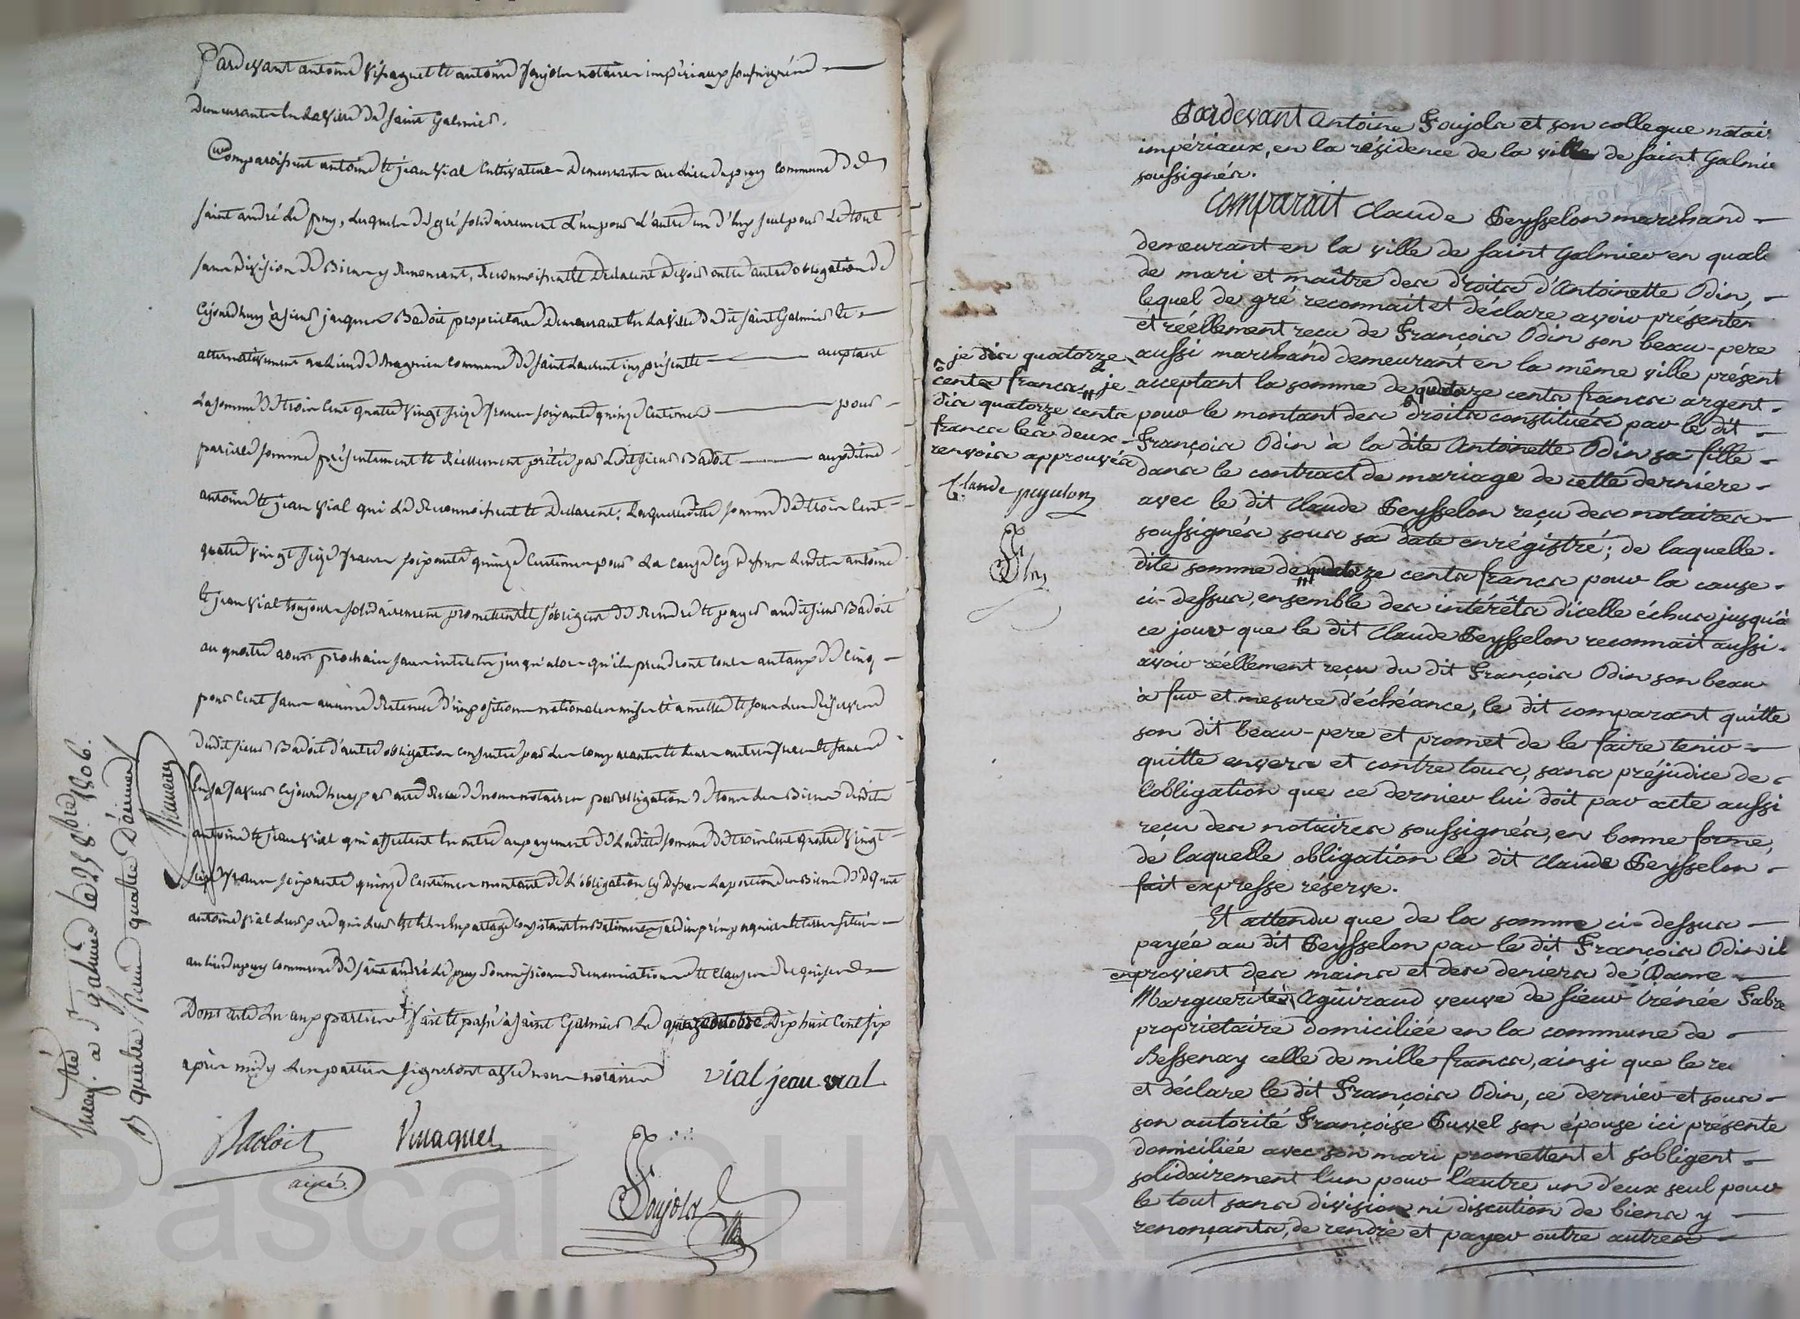 Pardevant antoine Vinagnet et antoine Poujola notaires impériaux soussignés
Demeurants en la ville de saint Galmier.
Comparoissent antoine et jean vial cultivateurs demeurants au lieu du puy commune de
saint andré le puy, lesquels de gré solidairement l'un pour l'autre un d'eux seul pour le tout
sans division de Biens y Renonçant, Reconnoissent et Declarent devoir outre autre obligation de
cejourd'huy à sieur jacques Badoit proprietaire Demeurant en la ville dudit saint Galmier et
alternativement au lieu de magnieu commune de saint Laurent ici présent et acceptant
La somme de trois cent quatre vingt seize francs soixante quinze centimes pour
pareille somme présentement et réellement prêtée par ledit sieur Badoit auxdits
antoine et jean vial qui le Reconnoissent et Declarent, Laquelle ditte somme de trois cent
quatre vingt seize francs soixante quinze centimes pour la cause cy dessus lesdits antoine
et jean vial toujours solidairement promettent et s'obligent de Rendre et payer audit sieur Badoit
au quatre aoust prochain sans interets jusqu'alors qu'ils prendront cours au taux de cinq
pour cent sans aucune Retenue d'impositions nationales mises et a mettre et sous les Réserves
dudit sieur Badoit d'autre obligation consentie par les comparants et leurs autres freres et sœurs
en sa faveur cejourd'huy par acte Reçu de nous notaires par obligation de tous les Biens desdits
antoine et jean vial qui affectent en outre au payement de Laditte somme de trois cent quatre vingt
seize francs soixante quinze centimes montant de l'obligation cy dessus la portion des Biens de defunt
antoine vial leur pere qui leur est échu en partage consistant en Batiments jardin pré paquier et terre situés
au lieu du puy commune de saint andré le puy soumissions Renonciations et clauses Requises
Dont acte lu aux parties fait et passé à saint Galmier le quinze octobre Dix huit cent six
après midy les parties signeront avec nous notaires vial jean vial
Badoit
ainé
Vinagnet
Poujola
a St galmier le 23 8bre 1806.
Pardevant Antoine Poujola et son collegue notai
impériaux, en la résidence de la ville de saint Galmie
soussignés.
Comparait Claude Peysselon marchand
demeurant en la ville de saint Galmier en quali
de mari et maître des droits d'Antoinette Odin,
lequel de gré reconnait et déclare avoir présentem
et réellement reçu de François Odin son beau-pere
aussi marchand demeurant en la même ville présent
acceptant la somme de quatorze cents francs argent
pour le montant des droits constitués par le dit
François Odin à la dite Antoinette Odin sa fille
dans le contract de mariage de cette derniere
avec le dit Claude Peysselon reçu des notaires
soussignés sous sa date enrégistré; de laquelle
dite somme de quatorze cents francs pour la cause
ci-dessus, ensemble des intérêts d'icelle échus jusqu'à
ce jour que le dit Claude Peysselon reconnait aussi
avoir réellement reçu du dit François Odin son beau
à fur et mesure d'échéance, le dit comparant quitte
son dit beau-pere et promet de le faire tenir
quitte envers et contre tous, sans préjudice de
l'obligation que ce dernier lui doit par acte aussi
reçu des notaires soussignés, en bonne forme,
de laquelle obligation le dit Claude Peysselon
fait expresse réserve.
Et attendu que de la somme ci-dessus
payée au dit Peysselon par le dit François Odin il
en provient des mains et des deniers de Dame
Marguerite Aguiraud veuve de sieur irénée Fabre
propriétaire domiciliée en la commune de
Bessenay celle de mille francs, ainsi que le re
et déclare le dit François Odin, ce dernier et sous
son autorité Françoise Puvel son épouse ici présente
domiciliée avec son mari promettent et s'obligent
solidairement l'un pour l'autre un d'eux seul pour
le tout sans division ni discution de biens y
renonçants, de rendre et payer outre autres
je dis quatorze
cents francs je
dis quatorze cents
francs les deux
renvois approuvés
Claude peysselon
Pascal CHAR